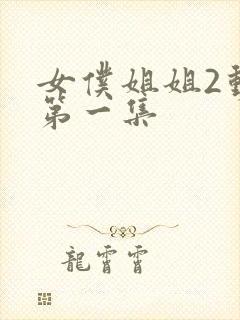 女僕姐姐2動
第一集
龍霄霄